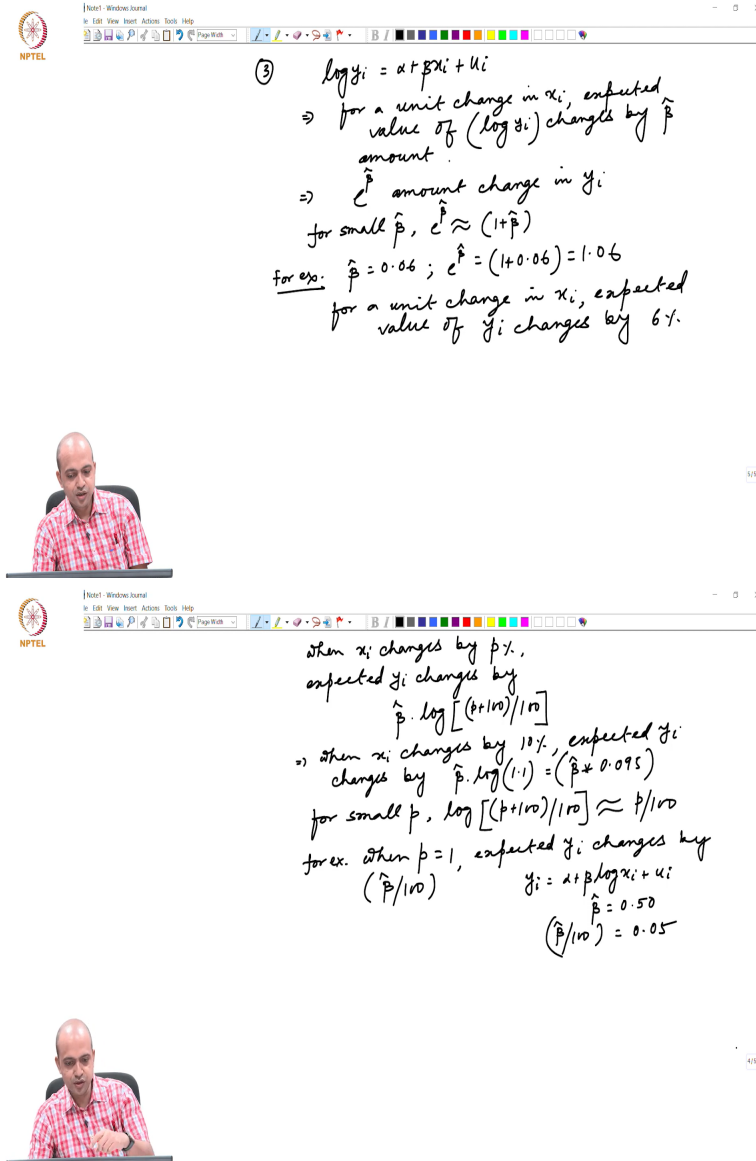 Note1 - Windows Journal
le Edit View Insert Actions Tools Help
Page Width
B I
NPTEL
③ log yi = α+βxi+ui
⇒ for a unit change in xi, expected
value of (log yi) changes by β̂
amount.
⇒ e^β̂ amount change in yi
for small β̂, e^β̂ ≈ (1+β̂)
for ex. β̂ = 0.06 ; e^β̂ = (1+0.06) = 1.06
for a unit change in xi, expected
value of yi changes by 6%.
5/5
Note1 - Windows Journal
le Edit View Insert Actions Tools Help
Page Width
B I
NPTEL
when xi changes by p%,
expected yi changes by
β̂. log [(p+100)/100]
⇒ when xi changes by 10%, expected yi
changes by β̂. log (1.1) = (β̂ * 0.095)
for small p, log [(p+100)/100] ≈ p/100
for ex. when p=1, expected yi changes by
(β̂/100) yi = α+βlogxi+ui
β̂ = 0.50
(β̂/100) = 0.05